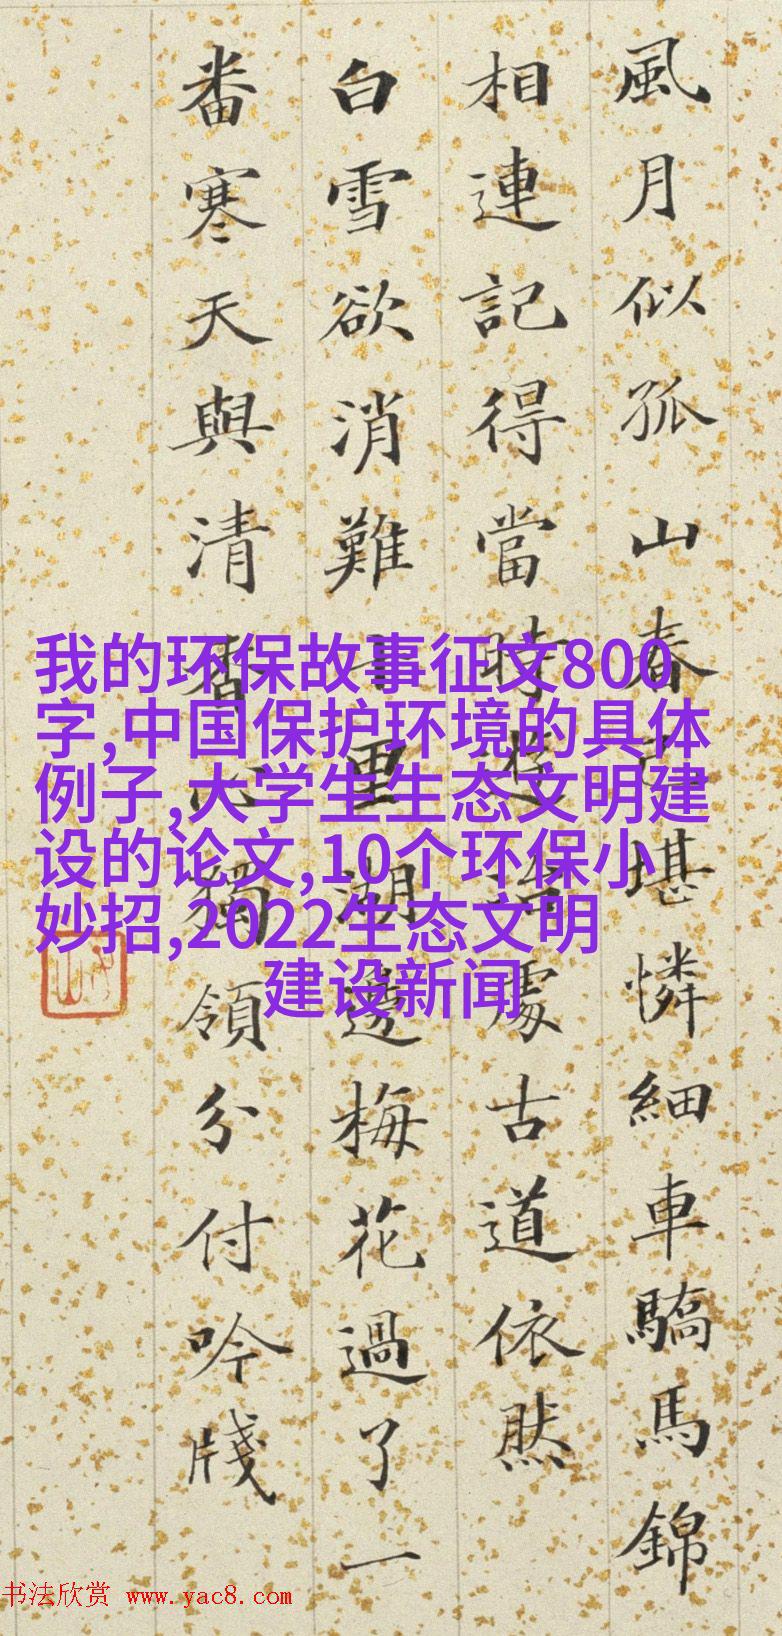 風月似孤山春堪憐細車驕馬錦
相連記得當時遊處古道依然
白雪欲消難十里湖邊梅花過了一
番寒天與清香心獨領分付吟牋
我的环保故事征文800
字,中国保护环境的具体
例子,大学生生态文明建
设的论文,10个环保小
妙招,2022生态文明
建设新闻
书法欣赏 www.yac8.com